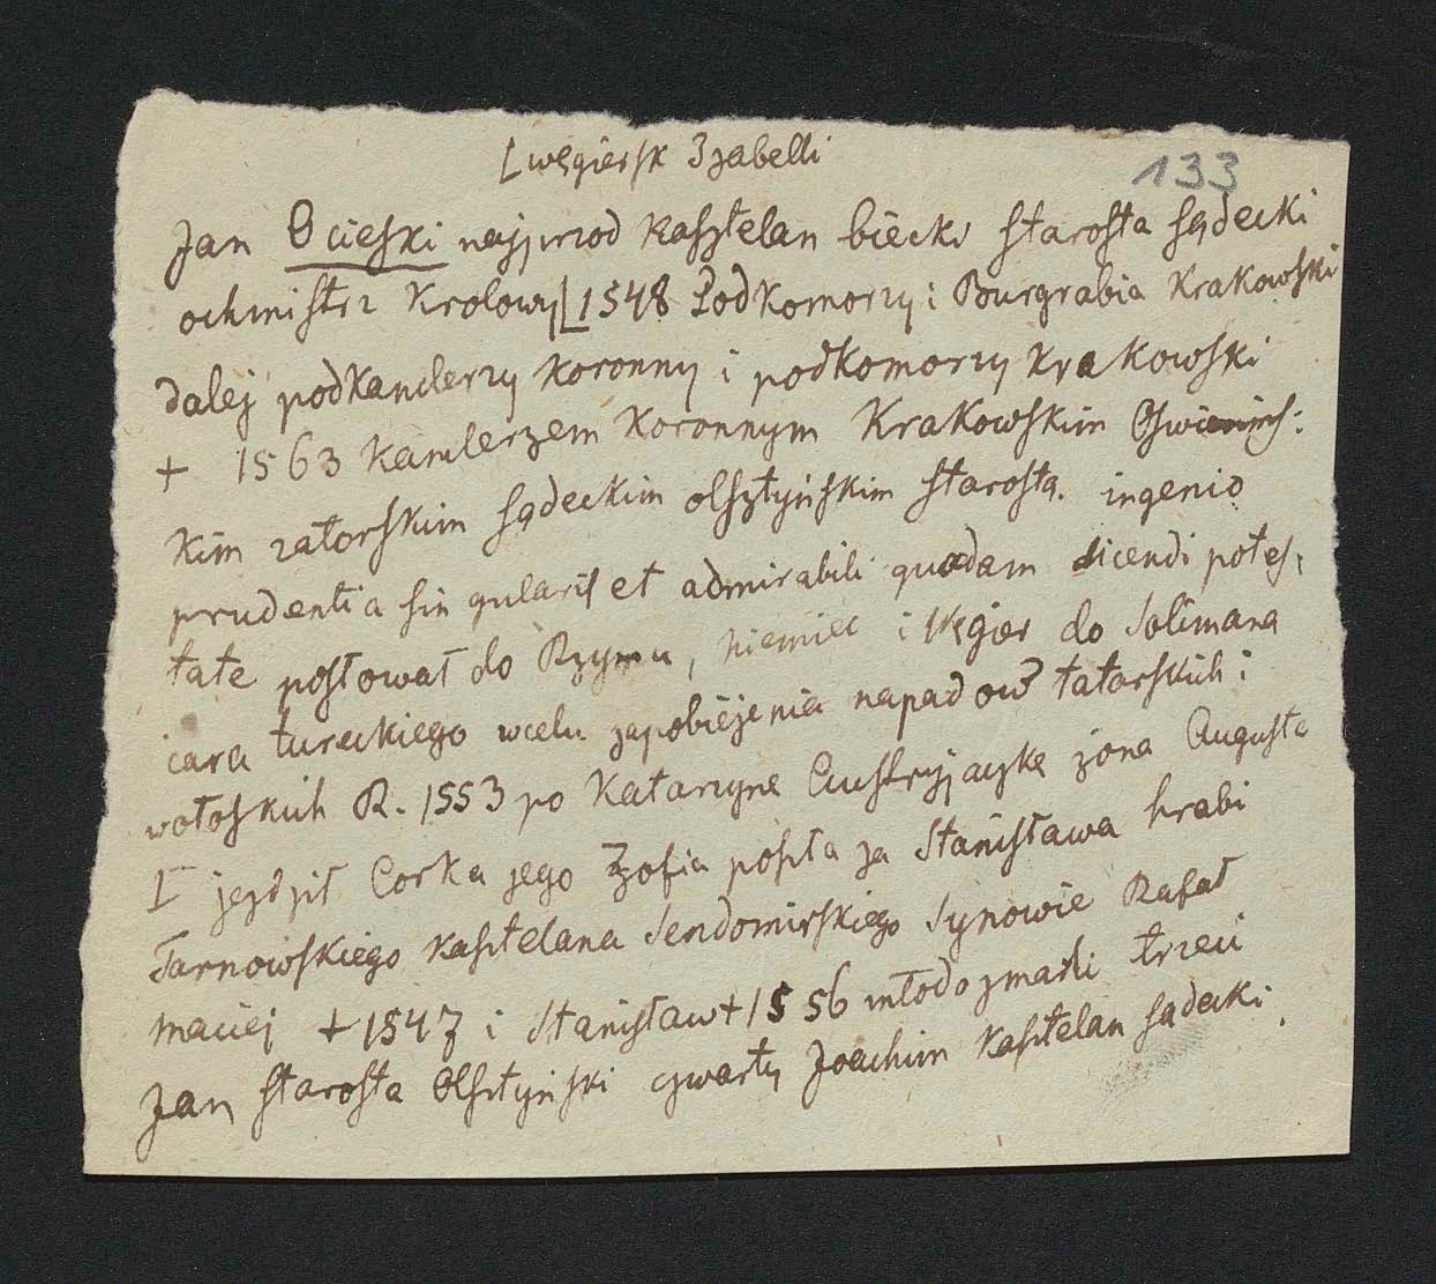 [węgiersk Izabelli
133
Jan Ocieski najprzod kasztelan biecki starosta sądecki
ochmistrz Krolowy[1548 Podkomorzy i Burgrabia Krakowski
dalej podkanclerzy koronny i podkomorzy krakowski
+ 1563 kanclerzem koronnym Krakowskim Oswiecims:
kim zatorskim sądeckim olsztyńskim starostą. ingenio
prudentia singularis et admirabili quadam dicendi potes:
tate posłował do Rzymu, niemiec i Węgier do Solimana
cara tureckiego wcelu zapobieżenia napadow tatarskich i
wołoskich R. 1553 po Katarzyne Austryjaczkę żona Augusta
I jezdził Corka jego Zofia poszła za Stanisława hrabi
Tarnowskiego kasztelana Sendomirskiego Synowie Rafał
maciej + 1547 i Stanisław + 1556 młodo zmarli trzeci
Jan starosta Olsztyński czwarty Joachim kasztelan sądecki.